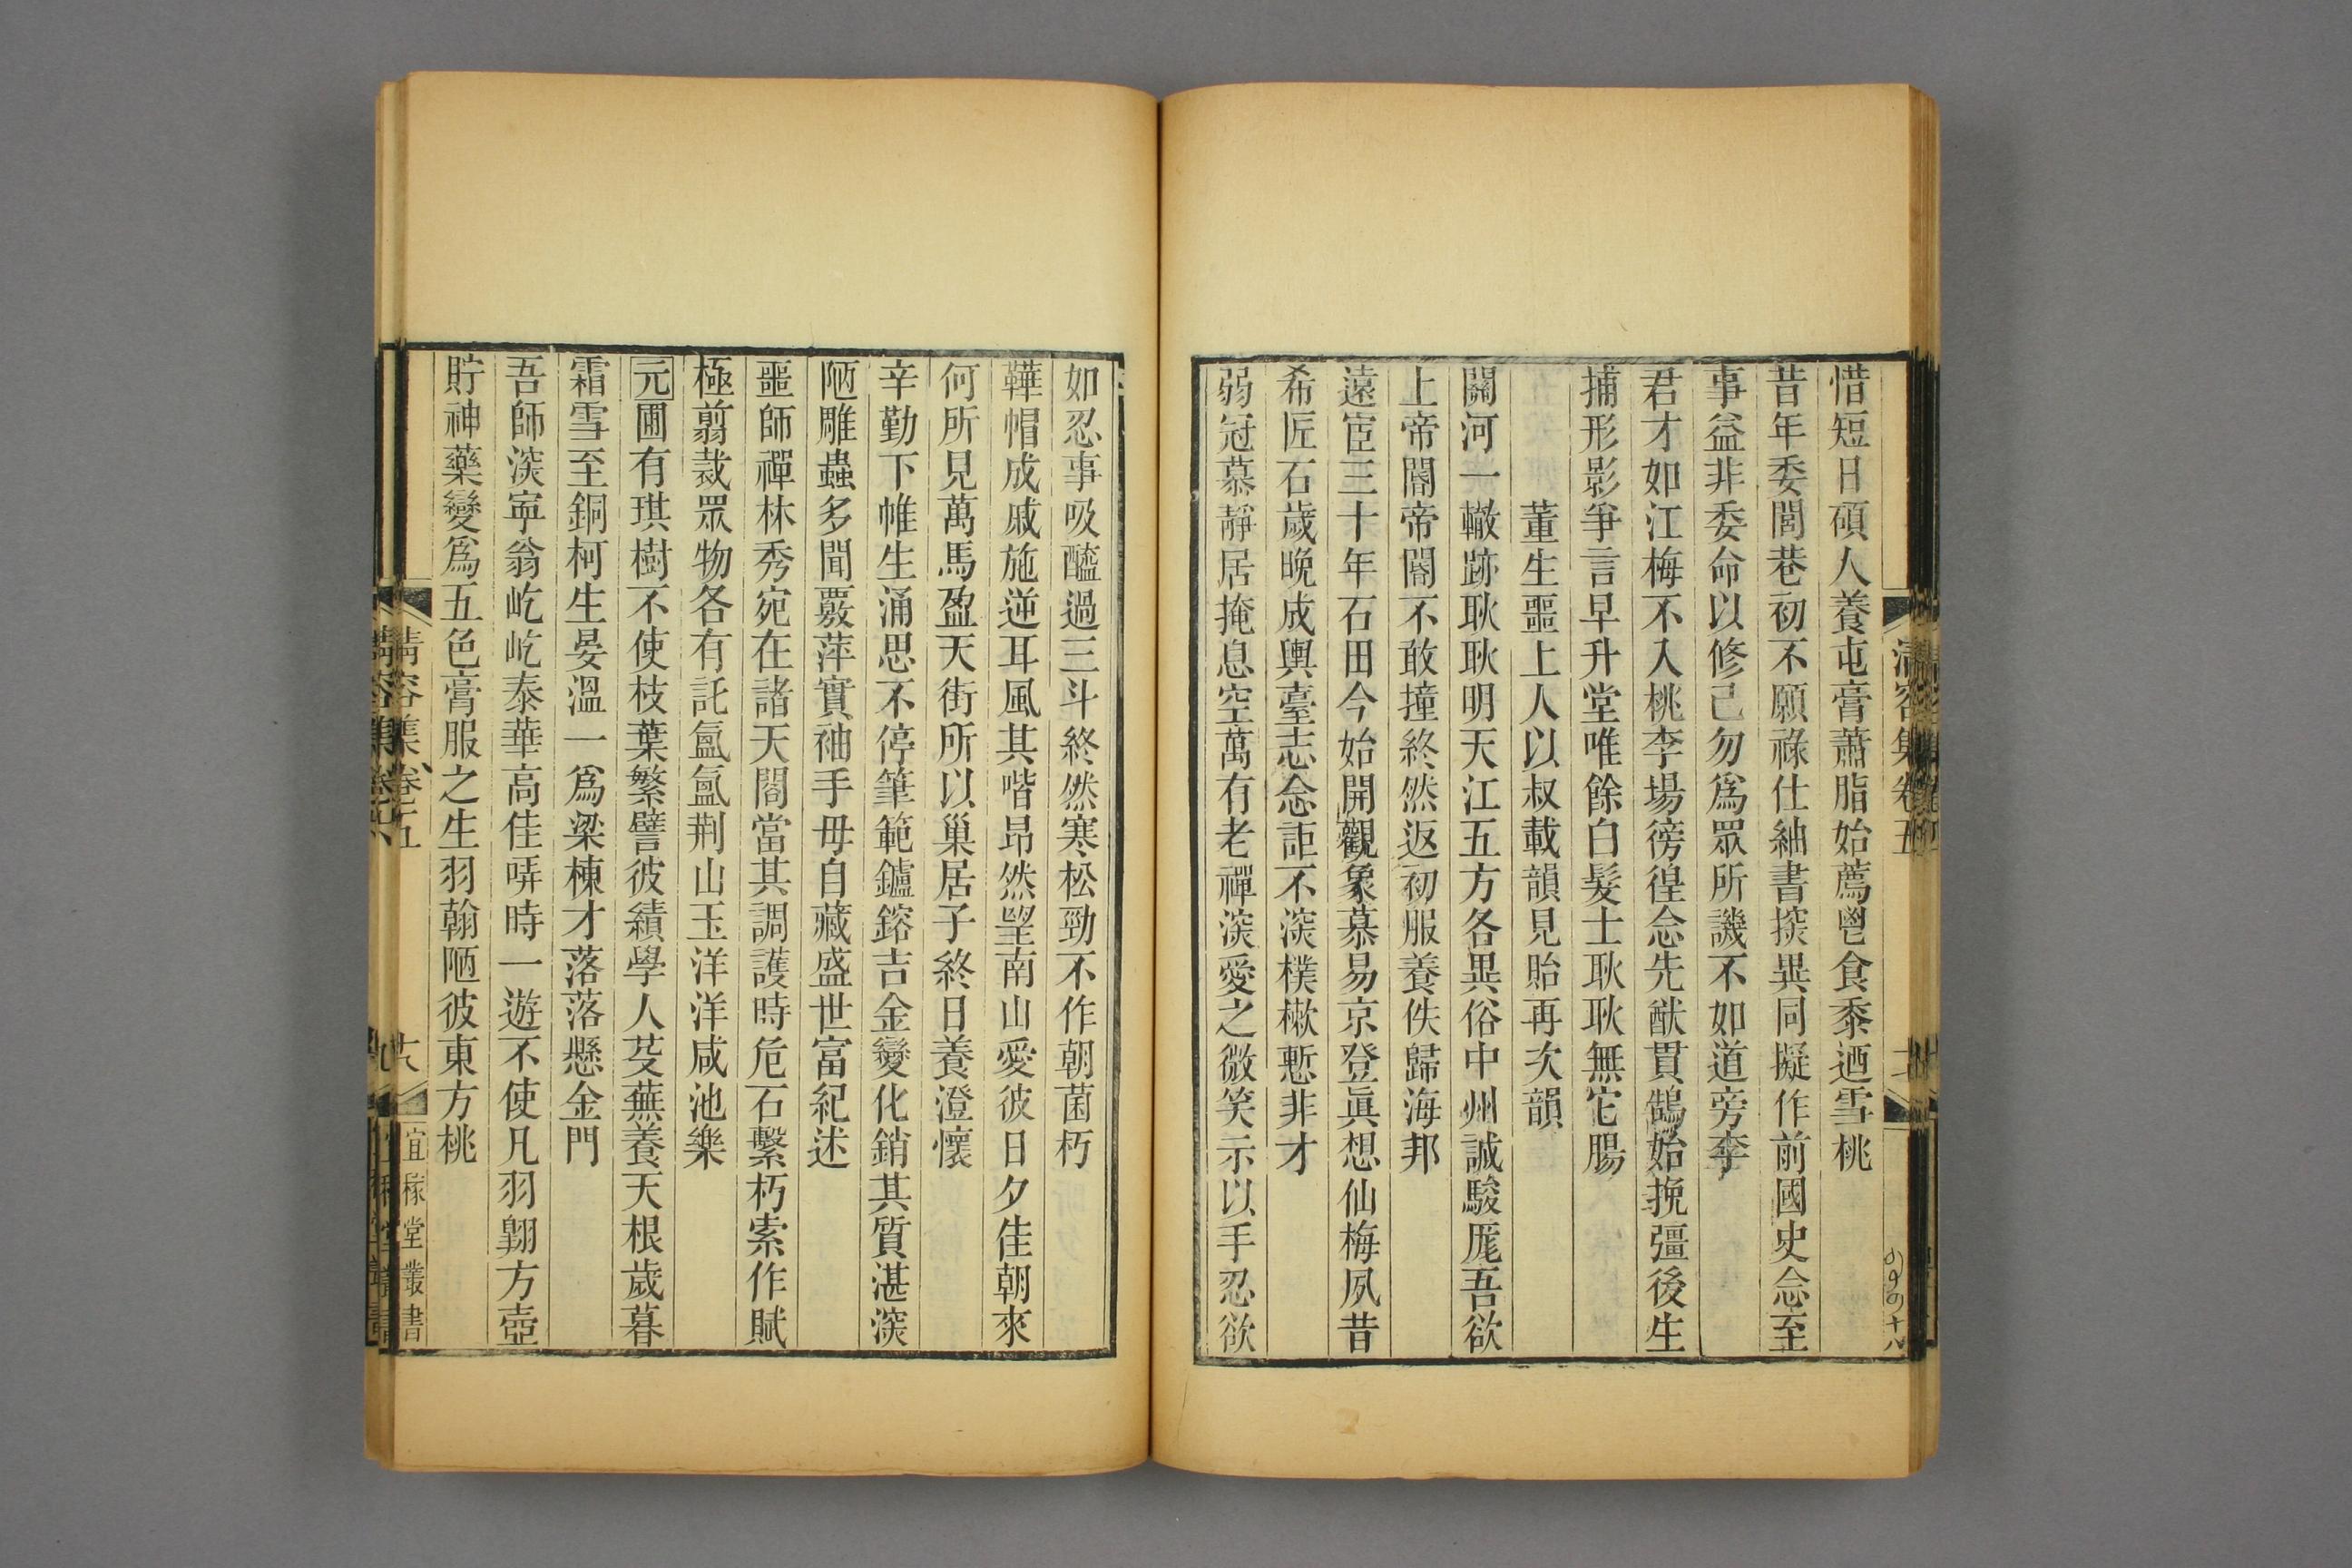 惜短日碩人養屯膏蕭脂始薦鬯食黍迺雪桃
昔年委閭巷初不願祿仕紬書㨷異同擬作前國史念至
事益非委命以修己勿爲眾所譏不如道旁李
君才如江梅不入桃李場徬徨念先猷貫鵠始挽彊後生
捕形影爭言早升堂唯餘白髮士耿耿無它腸
董生噩上人以叔載韻見貽再次韻
關河一轍跡耿耿明天江五方各異俗中州誠駿厖吾欲
上帝閽帝閽不敢撞終然返初服養佚歸海邦
遠宦三十年石田今始開觀象慕易京登眞想仙梅夙昔
希匠石歲晚成輿臺志念詎不深樸樕慙非才
弱冠慕靜居掩息空萬有老禪深愛之微笑示以手忍欲
清容集卷五
如忍事吸醯過三斗終然寒松勁不作朝菌朽
鞾帽成戚施逆耳風其喈昂然望南山愛彼日夕佳朝來
何所見萬馬盈天街所以巢居子終日養澄懷
辛勤下帷生涌思不停筆範鑪鎔吉金變化銷其質湛深
陋雕蟲多聞覈萍實袖手毋自藏盛世富紀述
噩師禪林秀宛在諸天閣當其調護時危石繫朽索作賦
極翦裁眾物各有託氳氳荆山玉洋洋咸池樂
元圃有琪樹不使枝葉繁譬彼績學人芟蕪養天根歲暮
霜雪至銅柯生晏溫一爲梁棟才落落懸金門
吾師深寧翁屹屹泰華高佳哢時一遊不使凡羽翺方壺
貯神藥變爲五色膏服之生羽翰陋彼東方桃
清容集卷五
十八
宜稼堂叢書